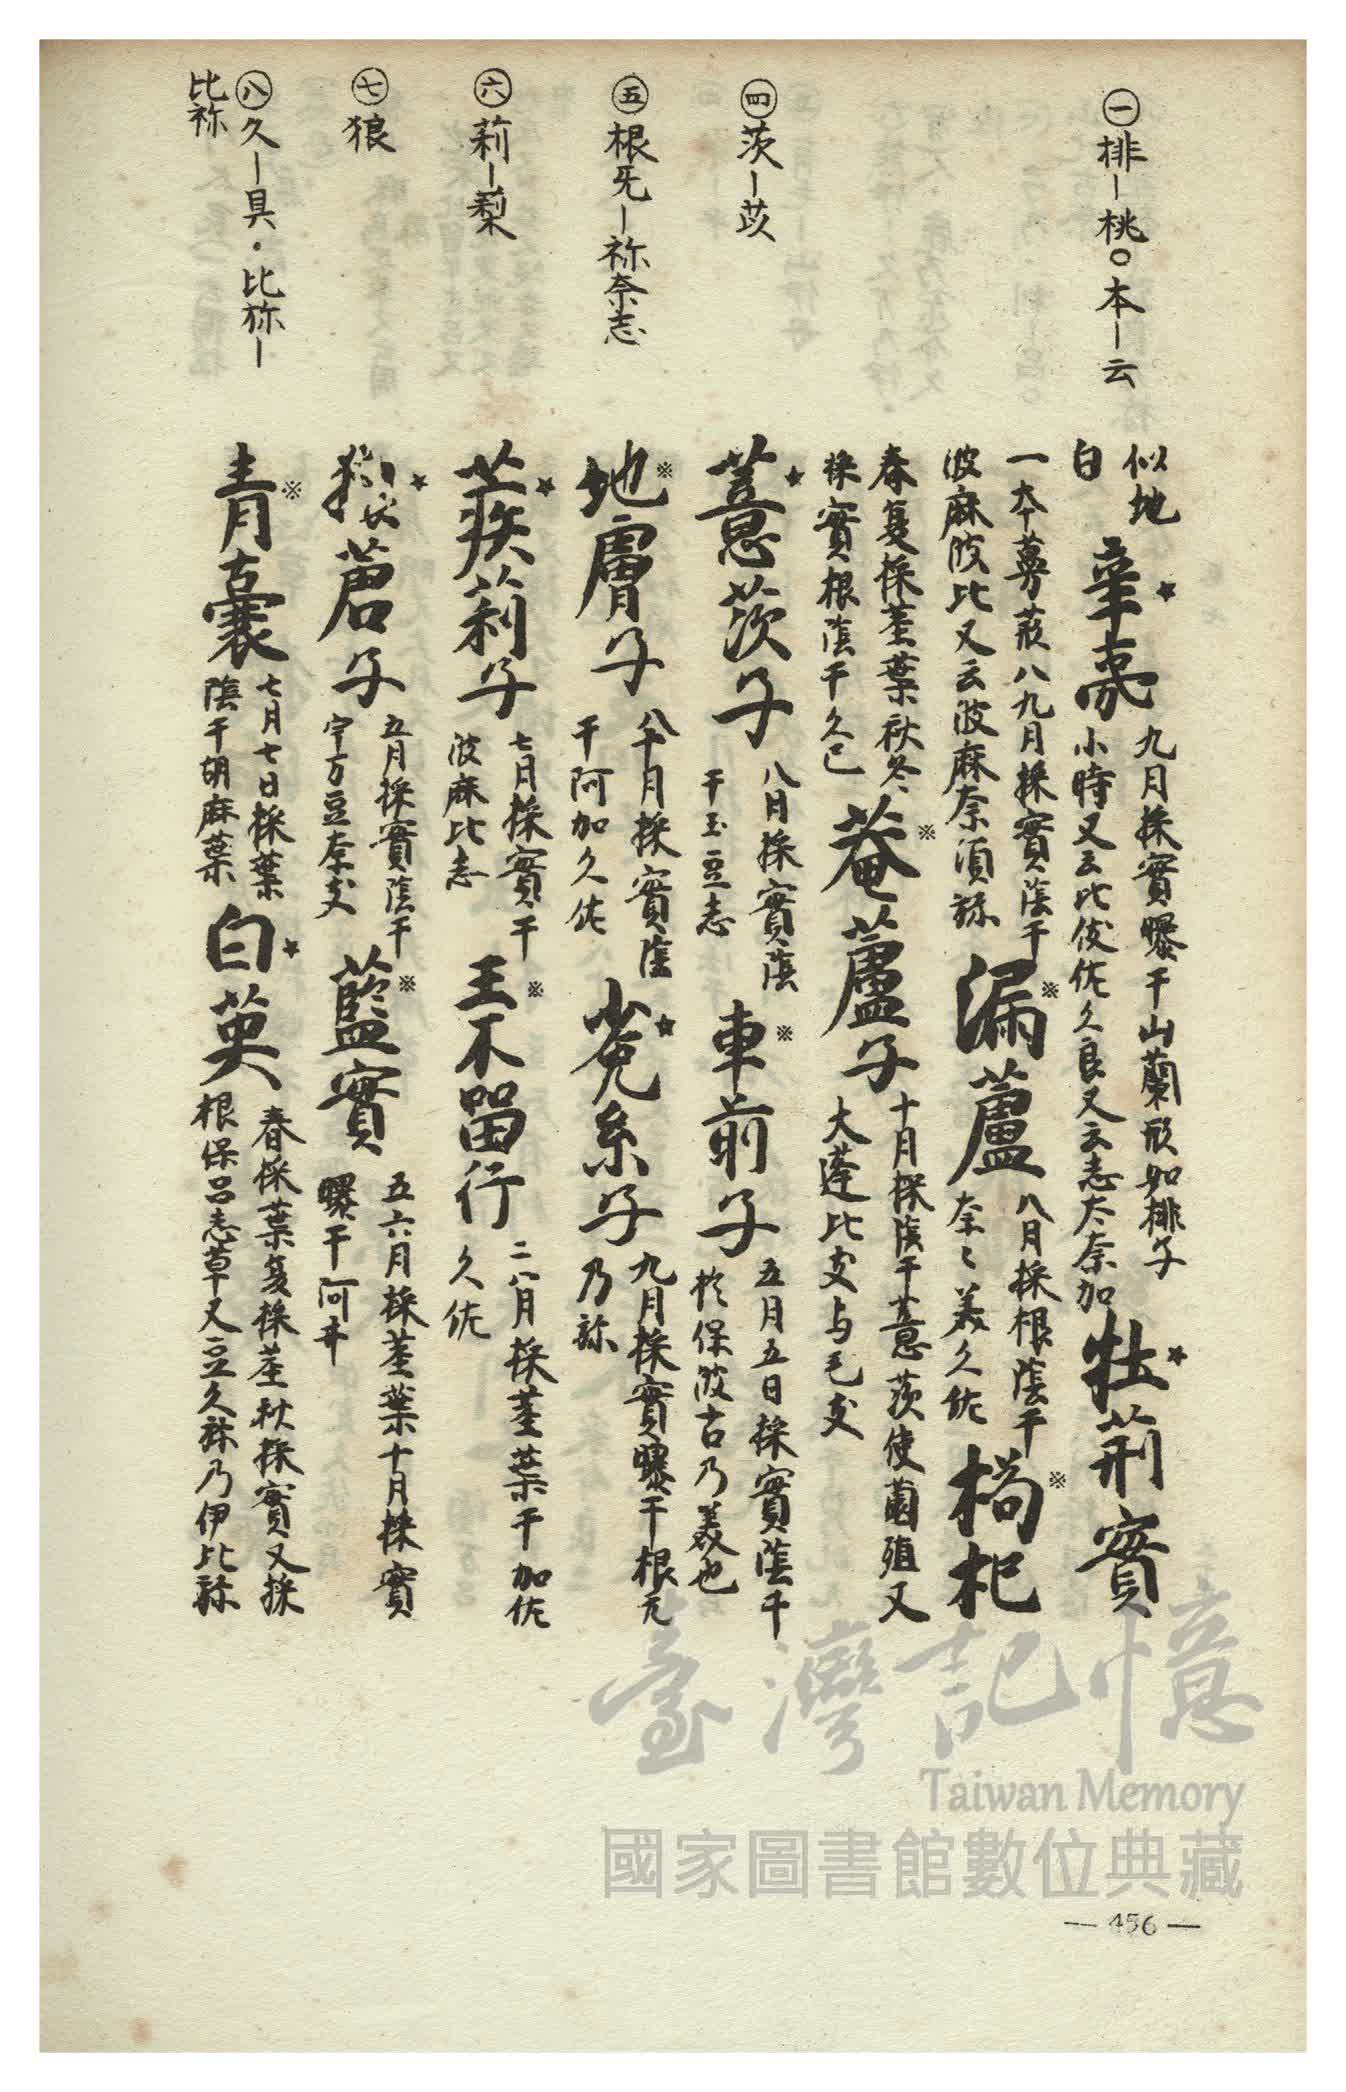 ㊀排-桃○本-云
㊃茨-苡
㊄根旡-祢奈志
㊅莉-梨
㊆狼
㊇久-具・比祢-
比祢
似地
白
辛夷★
九月採實曝干山蘭形如排子
小時又云比佐久良又云志太奈加
牡荊實★
一本蔓荊八九月採實蔭干
波麻波比又云波麻奈須
漏蘆※
八月採根蔭干
奈〻美久佐
枸杞※
春夏採莖葉秋冬
採實根蔭干久己
菴蘆子※
十月採蔭干薏茨使菌殖又
大蓬比支与毛支
薏茨子★
八月採實蔭
干玉豆志
車前子※
五月五日採實蔭干
於保波古乃美也
地膚子※
八十月採實蔭
干阿加久佐
菟糸子★
九月採實曝干根旡
乃
蒺莉子★
七月採實干
波麻比志
王不留行※
二八月採莖葉干加佐
久佐
蒼子★
五月採實蔭干
藍實※
五六月採莖葉十月採實
曝干阿井
青囊※
七月七日採葉
蔭干胡麻葉
白英★
春採葉夏採莖秋採實又採
根保呂志草又豆久祢乃伊比祢
臺灣記憶
Taiwan Memory
國家圖書館數位典藏
— 456 —